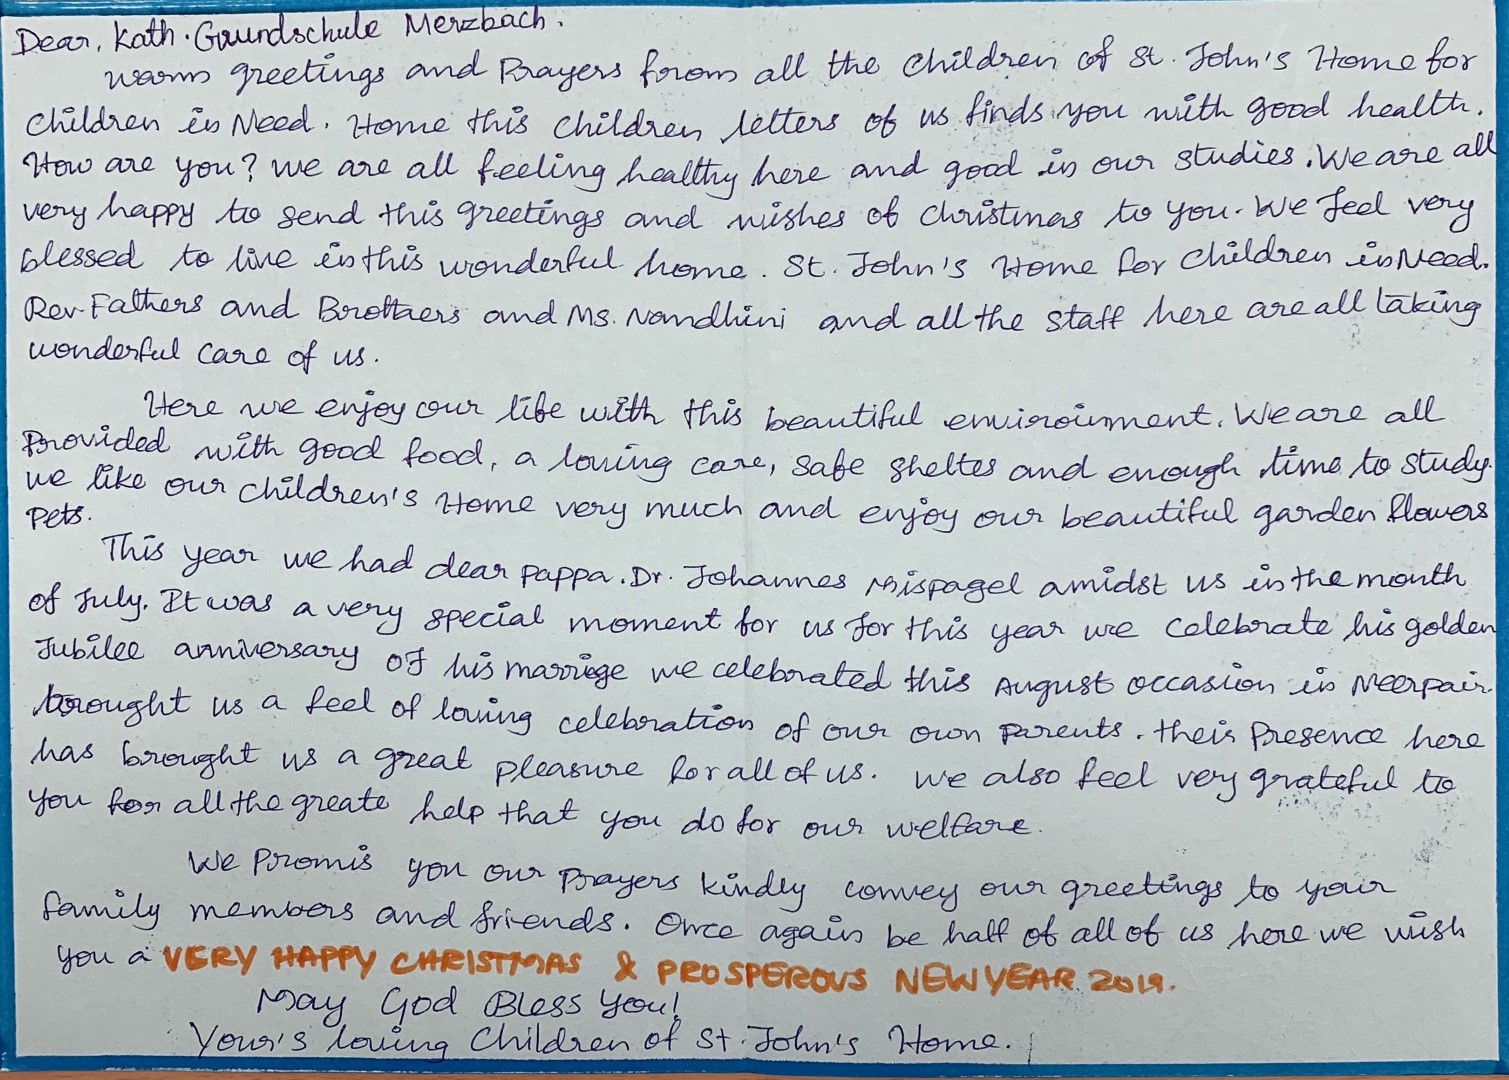 Dear, Kath. Grundschule Merzbach.
warm greetings and Prayers from all the children of St. John's Home for
children in Need. Home this children letters of us finds you with good health.
How are you? we are all feeling healthy here and good in our studies. We are all
very happy to send this greetings and wishes of christmas to you. We feel very
blessed to live in this wonderful home. St. John's Home for children in Need.
Rev. Fathers and Brothers and Ms. Nandhini and all the staff here are all taking
wonderful care of us.
Here we enjoy our life with this beautiful enviroinment. We are all
Provided with good food, a loving care, safe shelter and enough time to study.
we like our children's Home very much and enjoy our beautiful garden flowers
Pets.
This year we had dear pappa. Dr. Johannes Mispagel amidst us in the month
of July. It was a very special moment for us for this year we celebrate his golden
Jubilee anniversary of his marrige we celebrated this August occassion in Neerpair
brought us a feel of loving celebration of our own Parents. their Presence here
has brought us a great pleasure for all of us. we also feel very grateful to
you for all the greate help that you do for our welfare.
We Promis you our Prayers kindly convey our greetings to your
family members and friends. Once again be half of all of us here we wish
you a VERY HAPPY CHRISTMAS & PROSPEROUS NEW YEAR 2019.
May God Bless You!
Your's loving Children of St. John's Home.